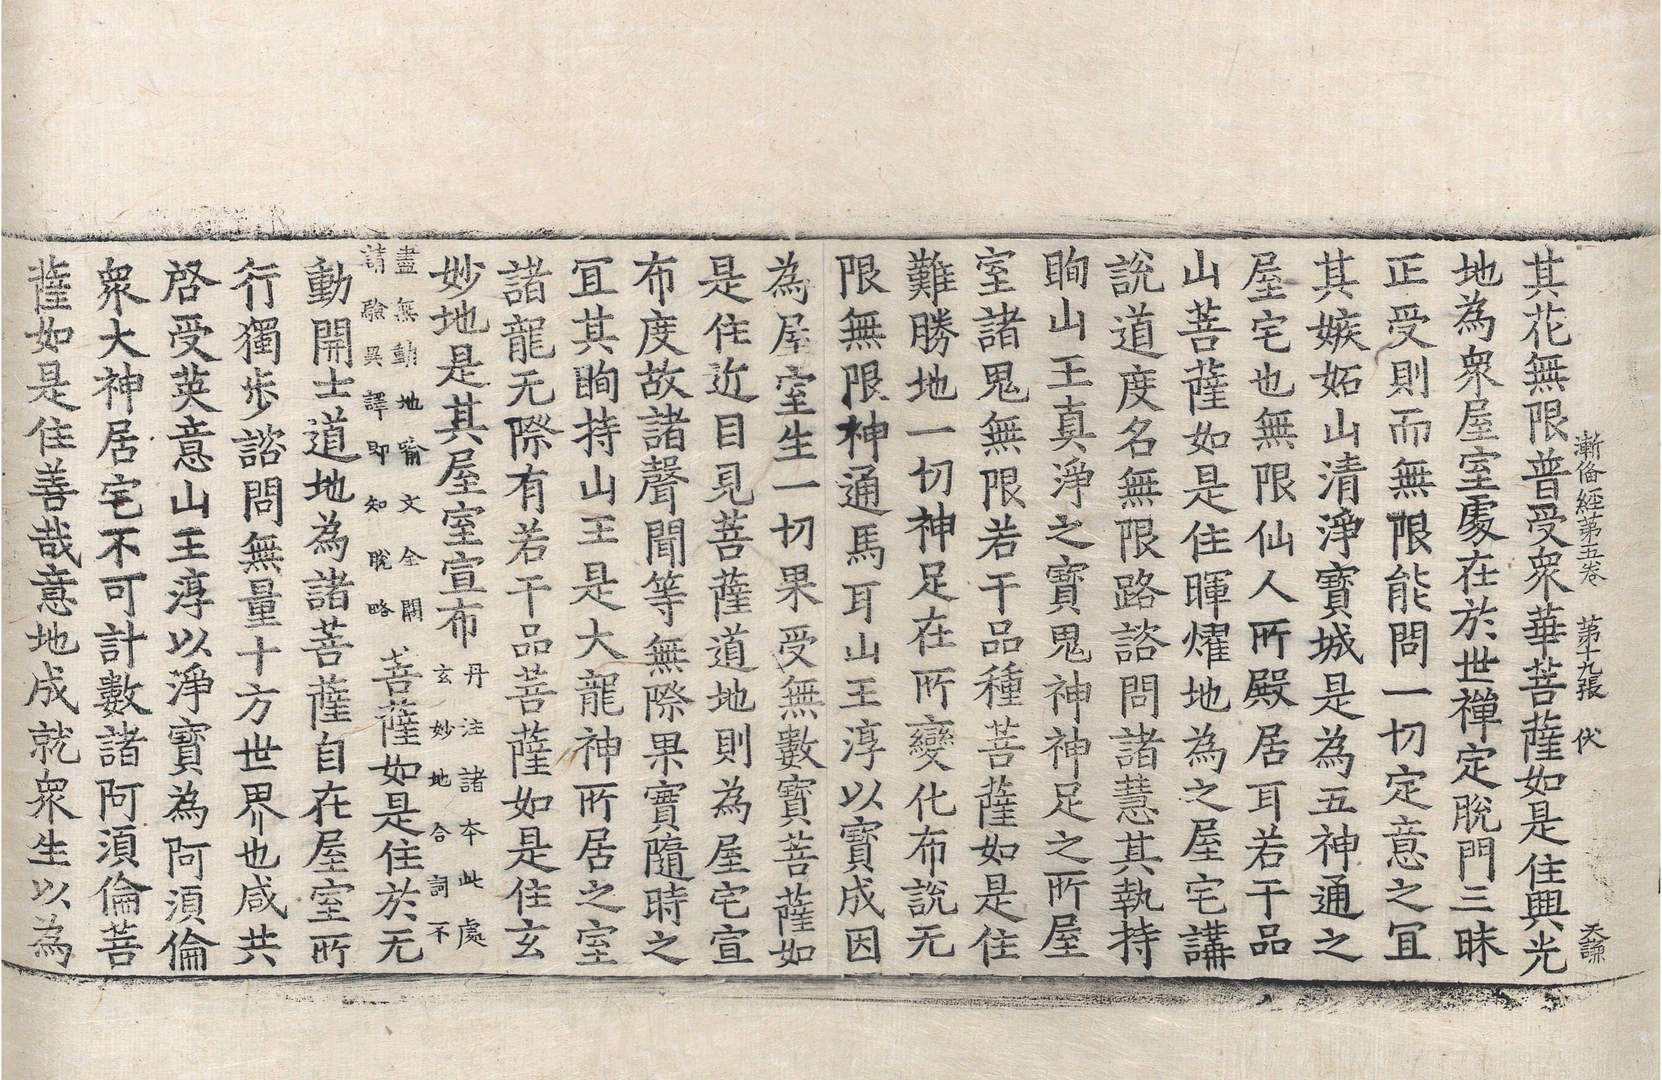 漸俻經第五卷 第十九張 伏 天謙
其花無限普受衆華菩薩如是住興光
地為衆屋室處在於世禪定脫門三昧
正受則而無限能問一切定意之冝
其嫉妬山清淨寶城是為五神通之
屋宅也無限仙人所殿居耳若干品
山菩薩如是住暉燿地為之屋宅講
說道度名無限路諮問諸慧其執持
眴山王真淨之寶鬼神神足之所屋
室諸鬼無限若干品種菩薩如是住
難勝地一切神足在所變化布說无
限無限神通馬耳山王淳以寶成因
為屋室生一切果受無數寶菩薩如
是住近目見菩薩道地則為屋宅宣
布度故諸聲聞等無際果實隨時之
冝其眴持山王是大龍神所居之室
諸龍无際有若干品菩薩如是住玄
妙地是其屋室宣布
丹注諸本此處
玄妙地合詞不
盡無動地喻文全闕
請驗異譯即知脫略
菩薩如是住於无
動開士道地為諸菩薩自在屋室所
行獨步諮問無量十方世界也咸共
啓受英意山王淳以淨寶為阿須倫
衆大神居宅不可計數諸阿須倫菩
薩如是住善哉意地成就衆生以為